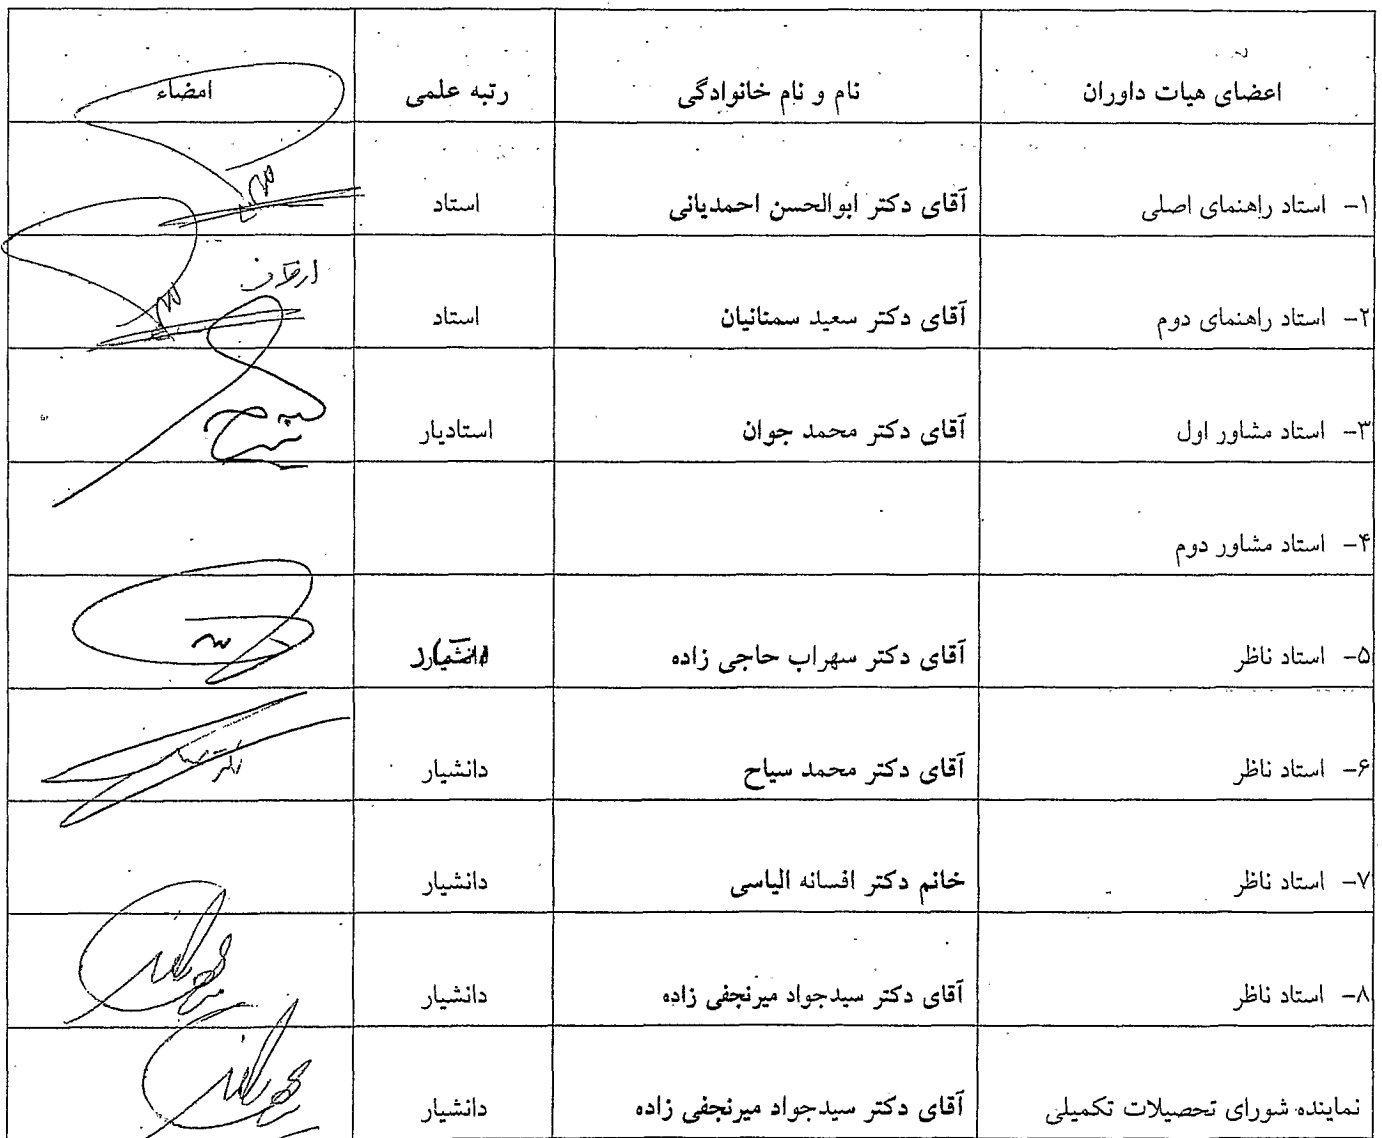 اعضای هیات داوران نام و نام خانوادگی رتبه علمی امضاء
۱- استاد راهنمای اصلی آقای دکتر ابوالحسن احمدیانی استاد
۲- استاد راهنمای دوم آقای دکتر سعید سمنانیان استاد
۳- استاد مشاور اول آقای دکتر محمد جوان استادیار
۴- استاد مشاور دوم
۵- استاد ناظر آقای دکتر سهراب حاجی زاده
۶- استاد ناظر آقای دکتر محمد سیاح دانشیار
۷- استاد ناظر خانم دکتر افسانه الیاسی دانشیار
۸- استاد ناظر آقای دکتر سیدجواد میرنجفی زاده دانشیار
نماینده شورای تحصیلات تکمیلی آقای دکتر سیدجواد میرنجفی زاده دانشیار